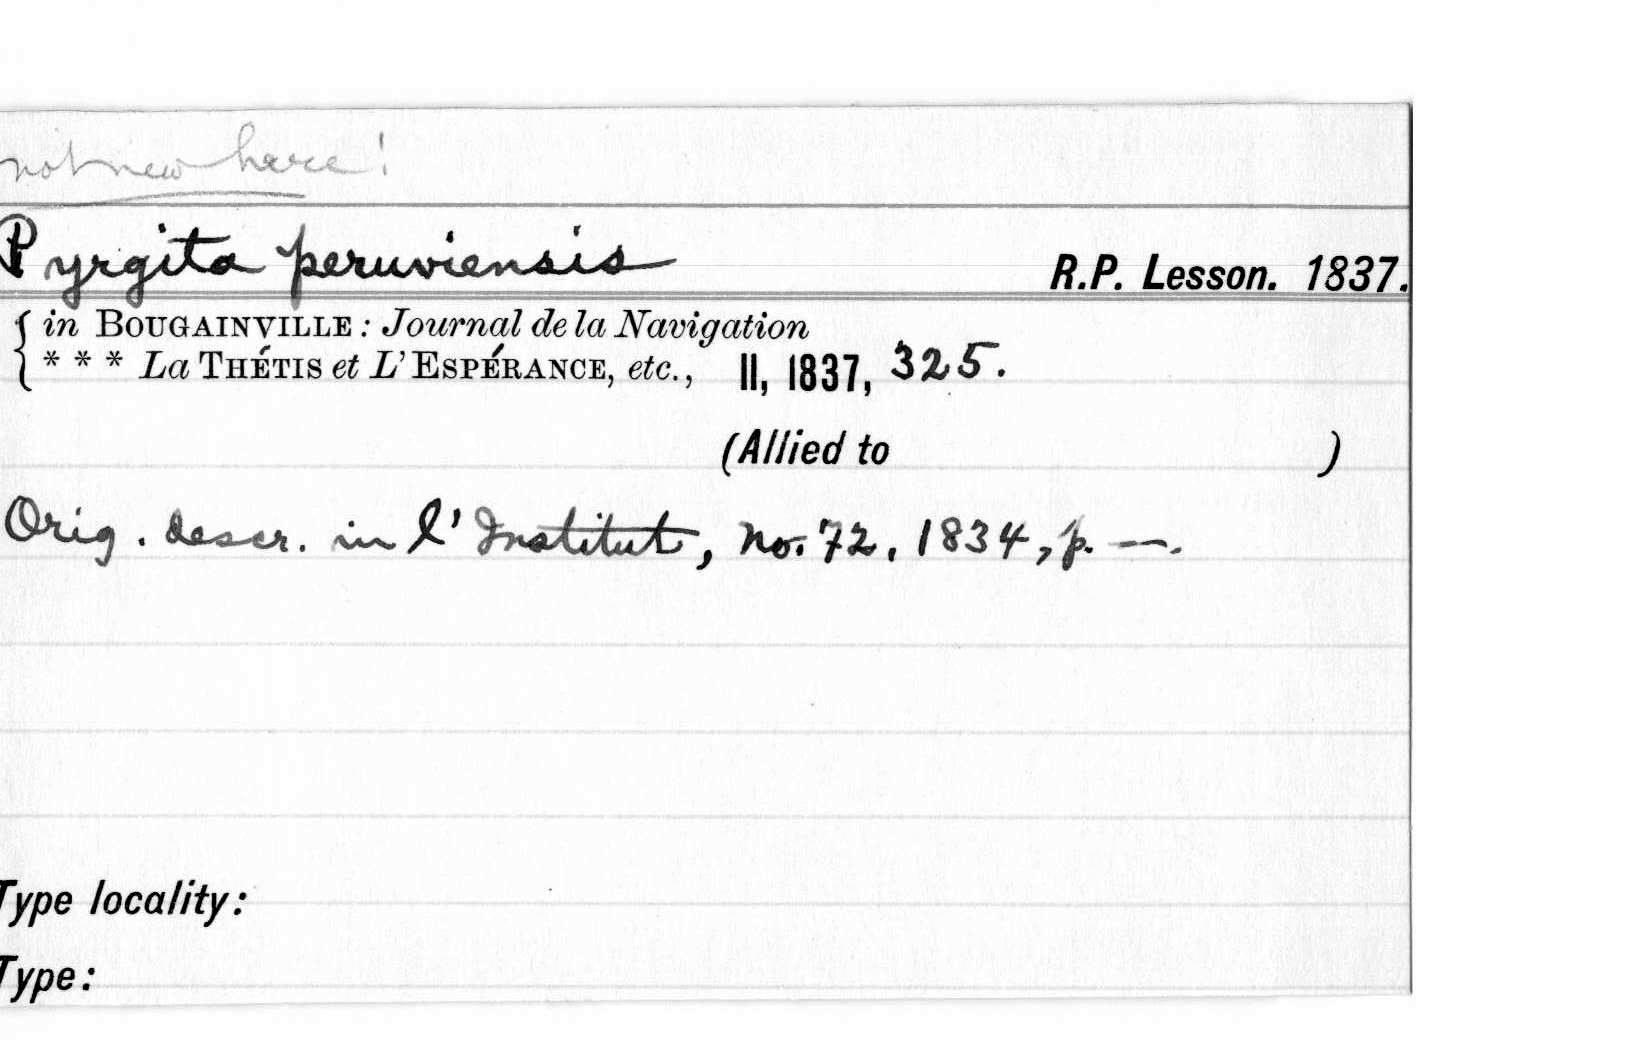 not new here!
Pyrgita peruviensis R.P. Lesson. 1837.
in BOUGAINVILLE: Journal de la Navigation
* * * La THÉTIS et L'ESPÉRANCE, etc., II, 1837, 325.
(Allied to )
Orig. descr. in l'Institut, No. 72, 1834, p. —.
Type locality:
Type: